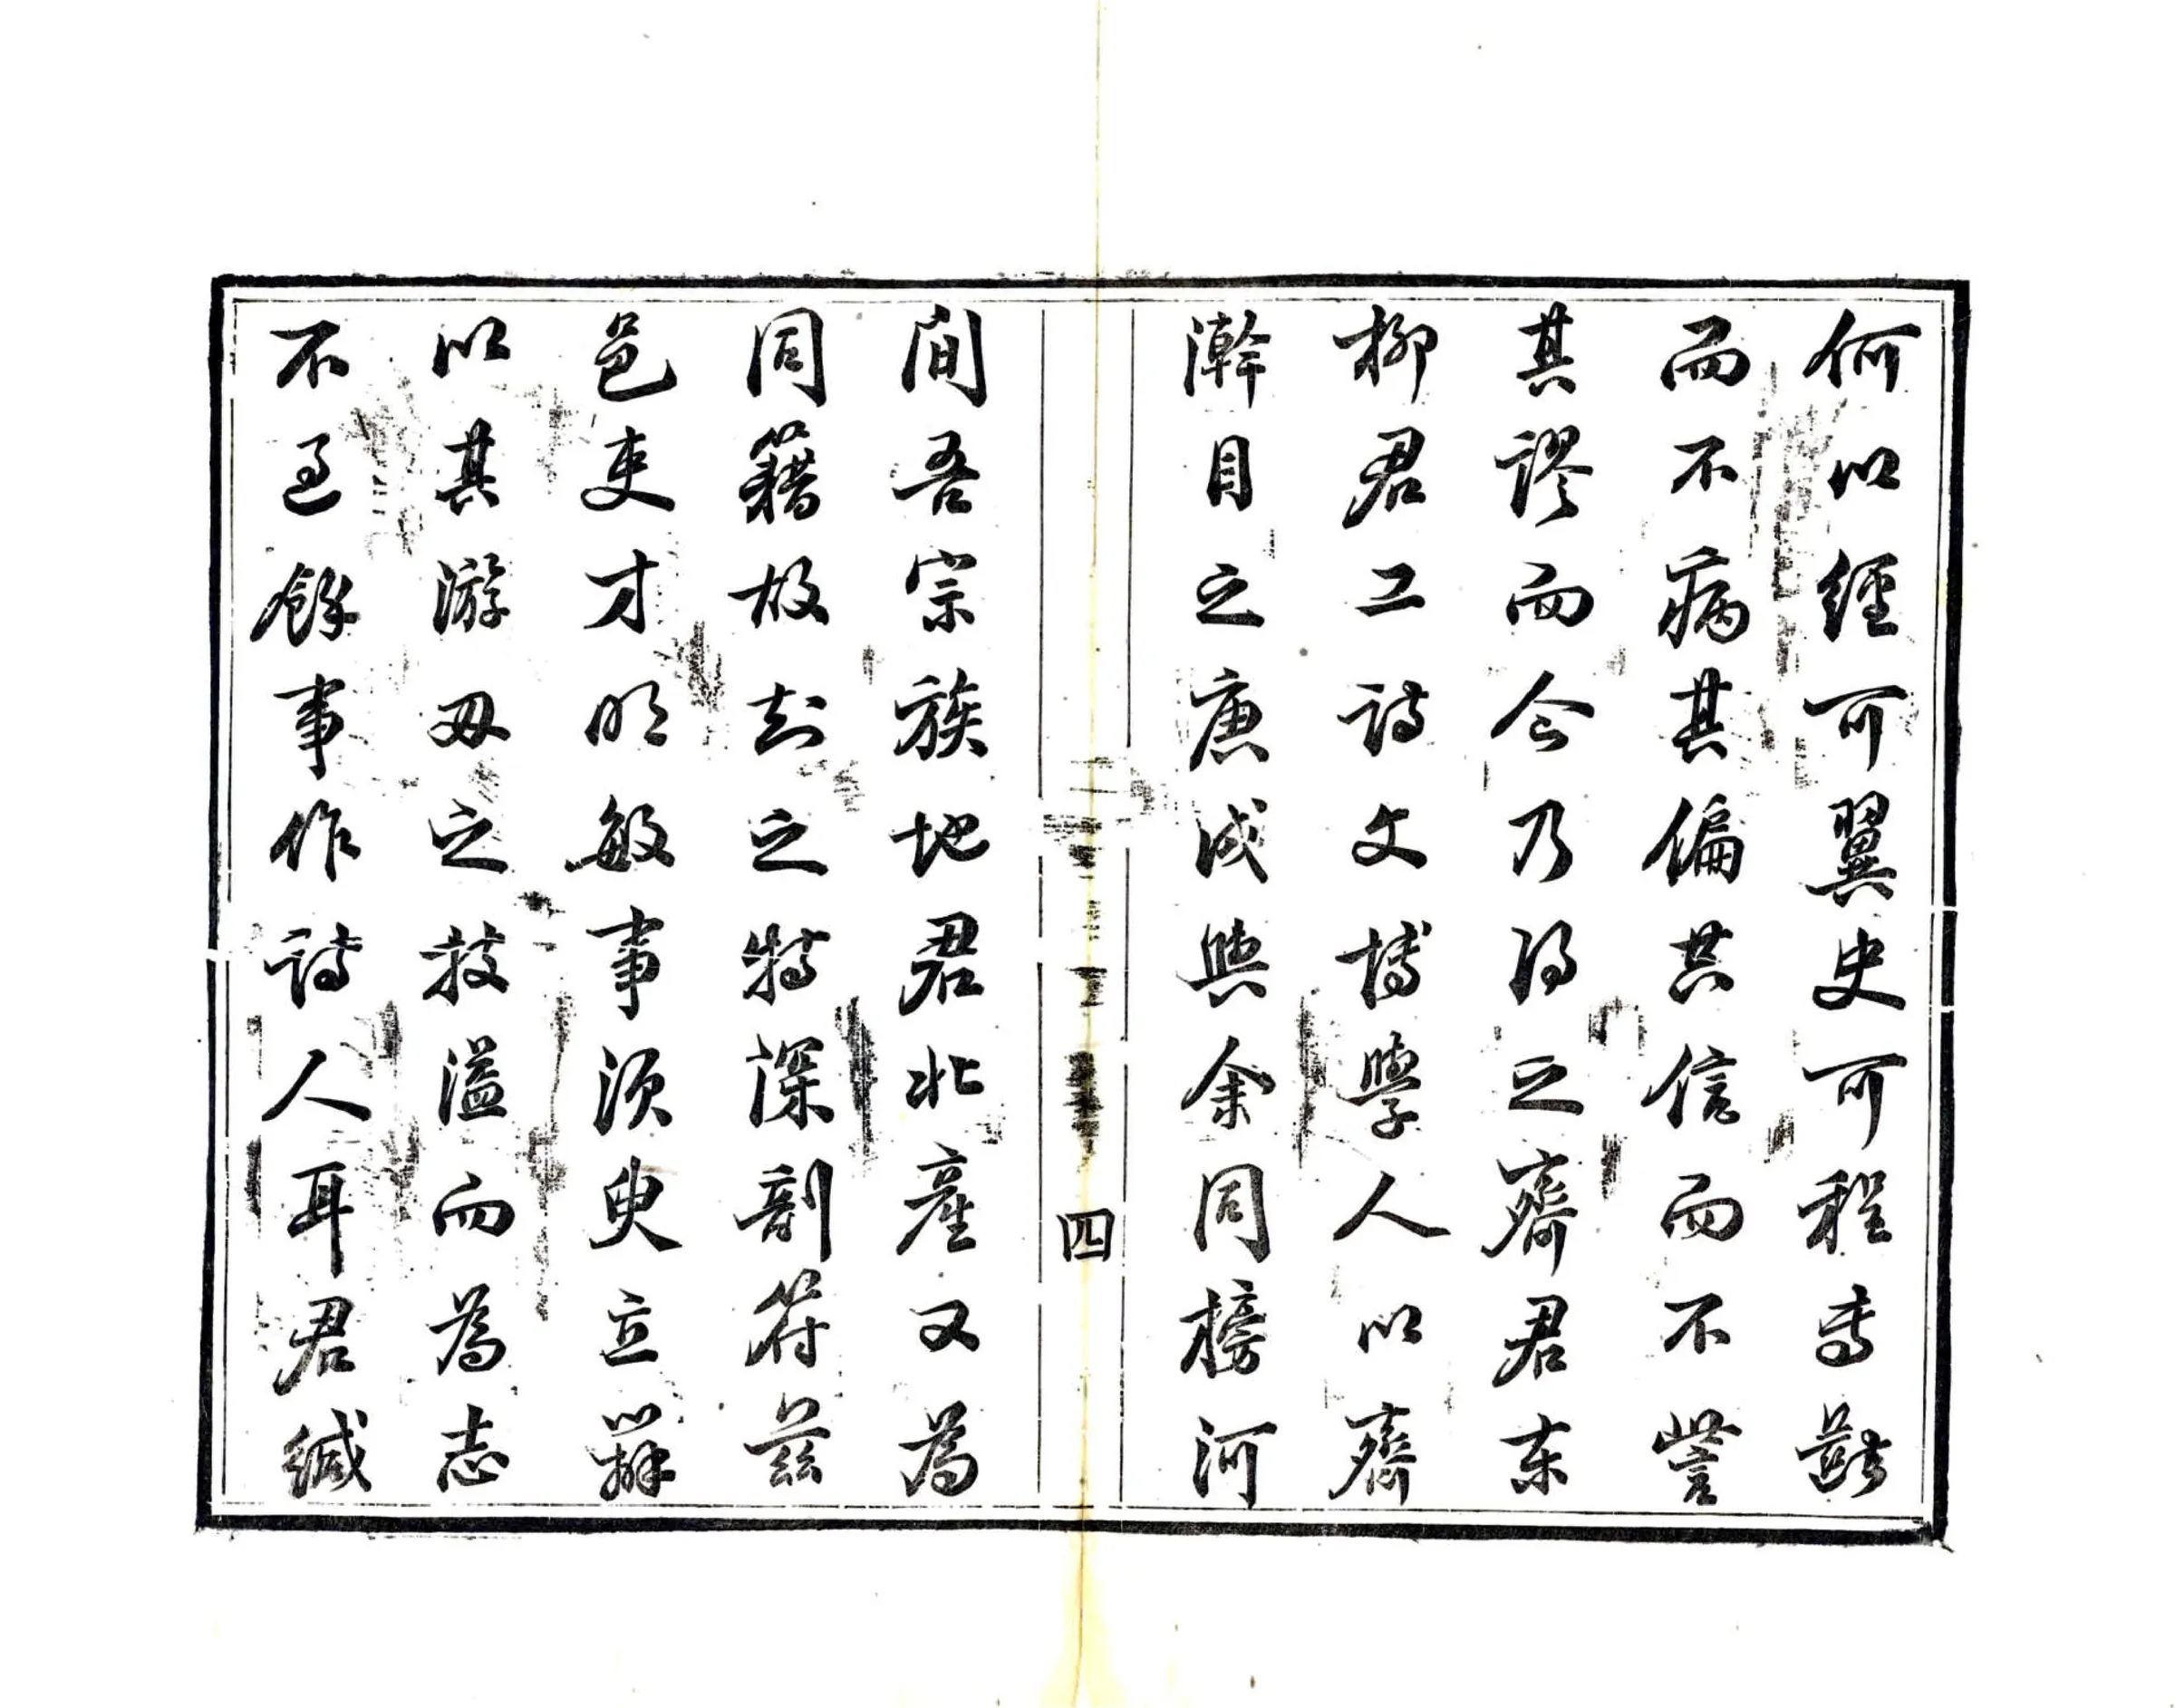 何以經可翼史可程古歟
而不病其偏共信而不訾
其謬而今乃得之齊君東
柳君工詩文博學人以齊
瀚目之庚戌與余同榜河
四
間吾宗族地君北產又為
同籍故知之特深剖符茲
邑吏才明敏事須臾立辦
以其游刃之技溢而為志
不過餘事作詩人耳君緘